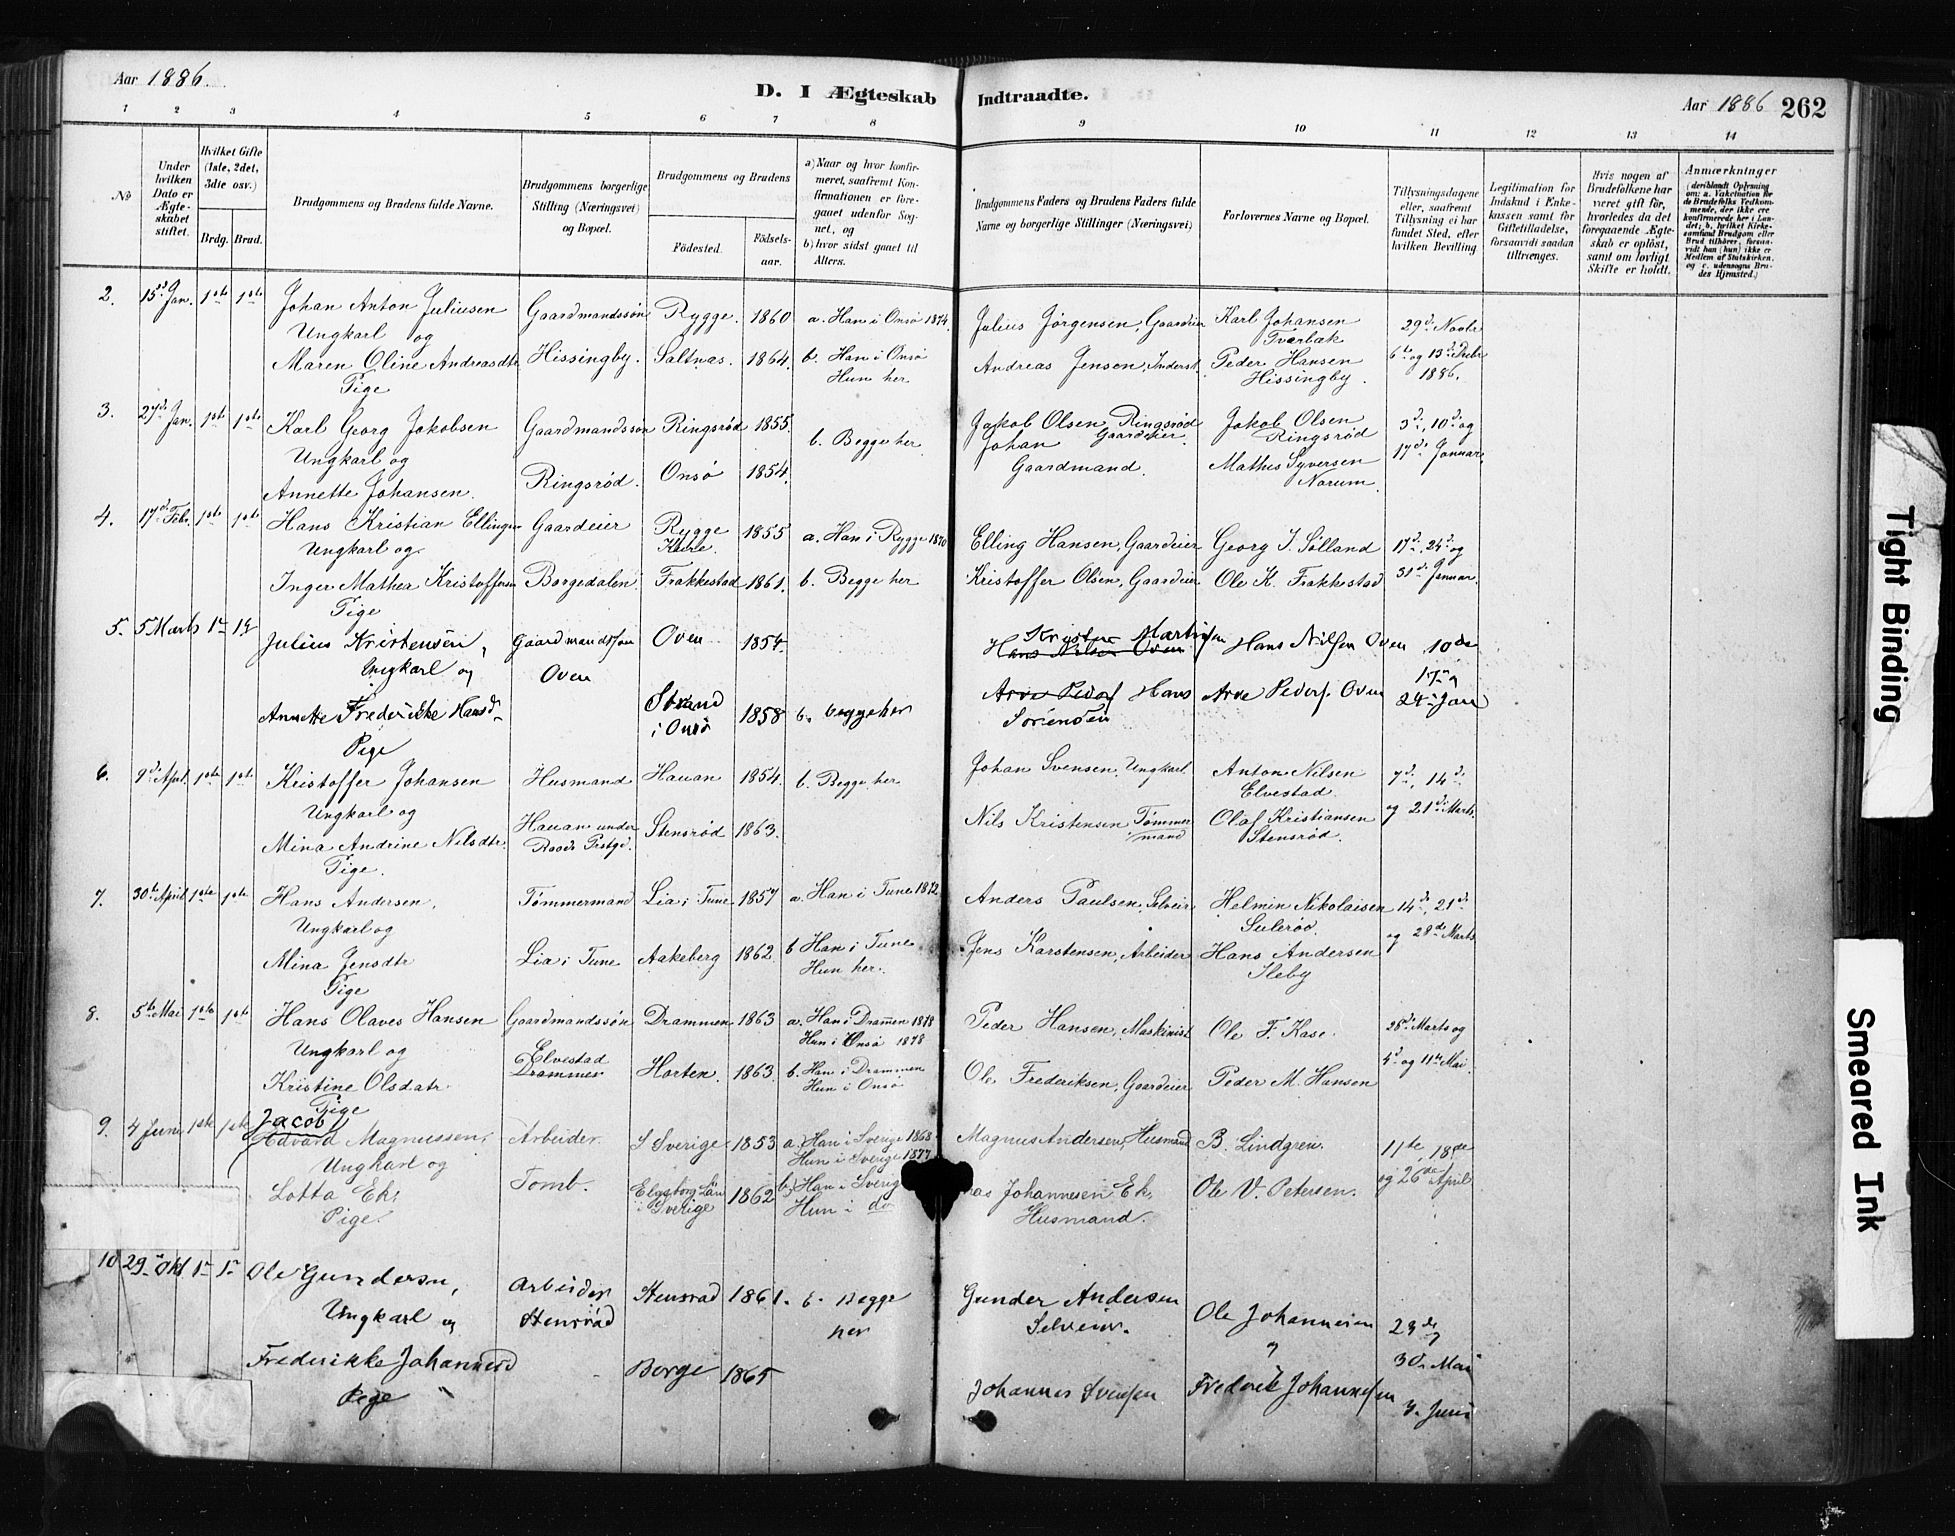 Aar 1886.
D. I Ægteskab Indtraadte.
Aar 1886 262
1 2 3 4 5 6 7 8 9 10 11 12 13 14
No
Under hvilken Dato er Ægteskabet stiftet.
Hvilket Gifte (1ste, 2det, 3die osv.)
Brdg. Brud.
Brudgommens og Brudens fulde Navne.
Brudgommens borgerlige Stilling (Næringsvei) og Bopæl.
Brudgommens og Brudens
Födested. Födsels-aar.
a) Naar og hvor konfirmeret, saafremt Konfirmationen er foregaaet udenfor Sognet, og
b) hvor sidst gaaet til Alters.
Brudgommens Faders og Brudens Faders fulde Navne og borgerlige Stillinger (Næringsvei)
Forlovernes Navne og Bopæl.
Tillysningsdagene eller, saafremt Tillysning ei har fundet Sted, efter hvilken Bevilling
Legitimation for Indskud i Enkekassen samt for Giftetilladelse, forsaavidt saadan tiltrænges.
Hvis nogen af Brudefolkene har været gift för, hvorledes da det foregaaende Ægteskab er oplöst, samt om lovligt Skifte er holdt.
Anmærkninger
(deriblandt Oplysning om: a. Vakcination for de Brudefolks Vedkommende, der ikke ere konfirmerede her i Landet; b. hvilket Kirkesamfund Brudgom eller Brud tilhörer, forsaavidt han (hun) ikke er Medlem af Statskirken, og c. udensogns Brudes Hjemsted.)
2. 15d Jan. 1ste 1ste Johan Anton Juliusen Gaardmandssøn Rygge. 1860 a. Han i Onsø 1874. Julius Jørgensen, Gaardeier Karl Johansen 29d Novbr
Ungkarl og Tværbæk
Maren Oline Andreasdtr Hissingby. Saltnæs. 1864. b. Han i Onsø Andreas Jensen, Inderst Peder Hansen 6te og 13d Debr
Pige Hun her Hissingby. 1886.
3. 27d Jan. 1ste 1ste Karl Georg Jakobsen Gaardmandssøn Ringsrød 1855. b. Begge her Jakob Olsen, Ringsrød Jakob Olsen 3d, 10d og
Ungkarl og Johan Gaardeier. Ringsrød 17d Januar
Annette Johansen. Ringsrød. Onsø 1854. Gaardmand. Mathis Syversen
Norum.
4. 17d Febr. 1ste 1ste Hans Kristian Ellingsen Gaardeier Rygge 1855 a. Han i Rygge 1870 Elling Hansen, Gaardeier Georg J. Sølland 17d, 24d og
Ungkarl og
Inger Mathea Kristoffersen Borgedalen Frakkestad 1861. b. Begge her Kristoffer Olsen, Gaardeier Ole K. Frakkestad 31d Januar
Pige
5. 5 Marts 1st 1st Julius Kristensen, Gaardmandsson Oven 1854. Hans Nilsen Oven Kristen Martinsen Hans Nilsen Oven 10de
Ungkarl og Oven 17 og
Annette Frederikke Hansd. Strand i Onsö 1858 b. begge her Arve Peders Hans Sörensen Arve Peders. Oven 24 Jan
Pige
6. 9d April 1ste 1ste Kristoffer Johansen Husmand Hauan 1854. b. Begge her Johan Svensen, Ungkarl Anton Nilsen 7d, 14d
Ungkarl og Elvestad
Mina Andrine Nilsdtr. Hauan under Raade Prstgd. Stensrød 1863. Nils Kristensen Tømmermand Olaf Kristiansen og 21d Marts.
Pige. Stensrød.
7. 30te April 1ste 1ste Hans Andersen, Tømmermand Lia i Tune 1857 a. Han i Tune 1872 Anders Paulsen, Selveier Helmin Nikolaisen 14d, 21d
Ungkarl og Sulerød.
Mina Jensdtr Lia i Tune Aakeberg 1862. b Han i Tune Jens Karstensen, Arbeider Hans Andersen og 28de Marts
Pige Hun her. Sleby
8. 5te Mai 1ste 1ste Hans Olaves Hansen Gaardmandssøn Drammen 1863 a. Han i Drammen 1878 Peder Hansen, Maskinist Ole F. Kase. 28d Marts og
Ungkarl og Hun i Onsø 1878
Kristine Olsdatr. Elvestad Drammen Horten. 1863. b. Han i Drammen Ole Frederiksen, Gaardeier Peder M. Hansen 4d og 11te Mai.
Pige Hun i Onsø
9. 4 Juni 1ste 1ste Jacob
Edvard Magnussen, Arbeider. I Sverige 1853 a. Han i Sverige 1868 Magnus Andersen, Husmand B. Lindgren. 11te, 18de
Ungkarl og Hun i Sverige 1877
Lotta Ek, Tomb. Elfsborg Län i Sverige 1862 b) Han i Sverig Johannesen Ek, Ole V. Petersen. og 26de April
Pige. Hun i do Husmand.
10 29 Okt 1 1 Ole Gundersen, Arbeider Stensrød 1861. b. Begge her Gunder Andersen Ole Johannesen 23de
Ungkarl og Stensrød Selveier. og 30. Mai
Frederikke Johannesd Borge 1865 Johannes Svensen Fredrik Johannessen 3. Juni
Pige
Tight Binding
Smeared Ink